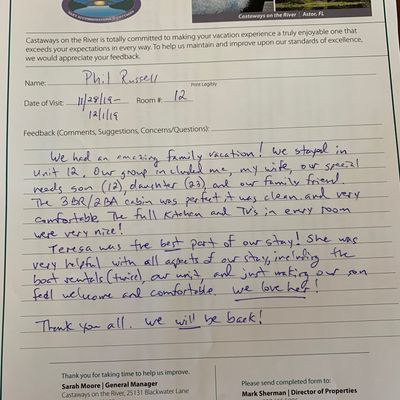 Castaways on the River | Astor, FL
Castaways on the River is totally committed to making your vacation experience a truly enjoyable one that
exceeds your expectations in every way. To help us maintain and improve upon our standards of excellence,
we would appreciate your feedback.
Name: Phil Russell
Print Legibly
Date of Visit: 11/28/19- Room #: 12
12/1/19
Feedback (Comments, Suggestions, Concerns/Questions):
We had an amazing family vacation! We stayed in
Unit 12. Our group included me, my wife, our special
needs son (12), daughter (23) and our family friend.
The 3BR/2BA cabin was perfect it was clean and very
comfortable. The full kitchen and TV's in every room
were very nice!
Teresa was the best part of our stay! She was
very helpful with all aspects of our stay, including the
boat rentals (twice), our unit, and just making our son
feel welcome and comfortable. We love her!
Thank you all. We will be back!
Thank you for taking time to help us improve.
Sarah Moore | General Manager
Castaways on the River, 25131 Blackwater Lane
Please send completed form to:
Mark Sherman | Director of Properties